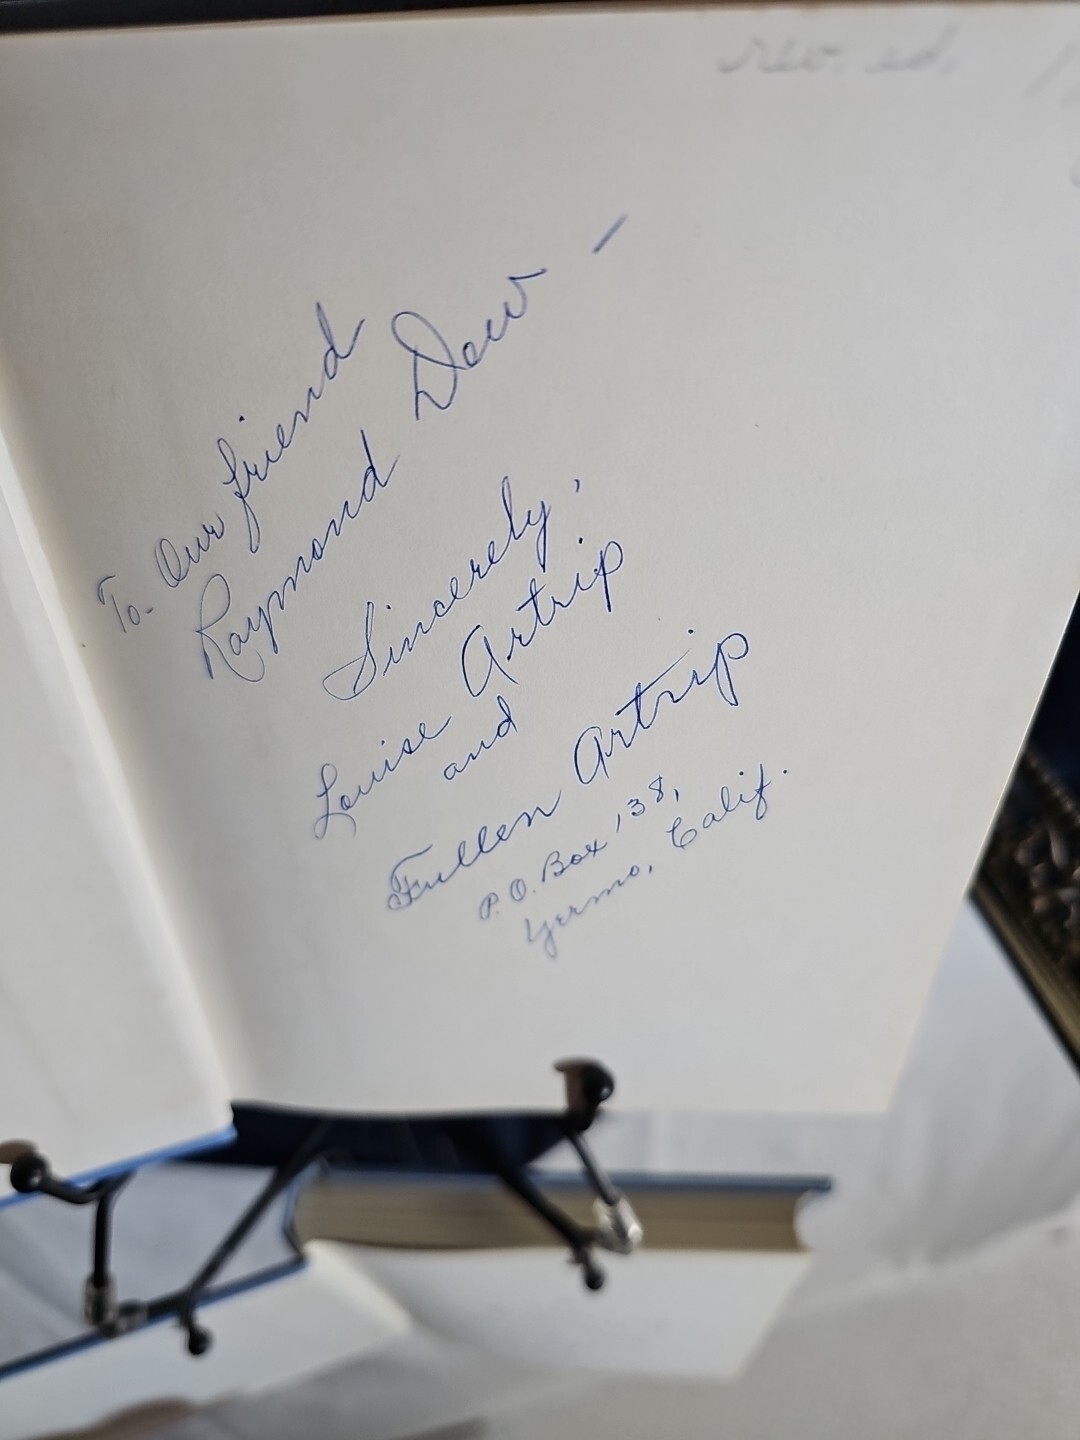 rev. ed.
To- Our friend
Raymond Dew —
Sincerely,
Louise Artrip
and
Fullen Artrip
P.O. Box 138,
Yermo, Calif.